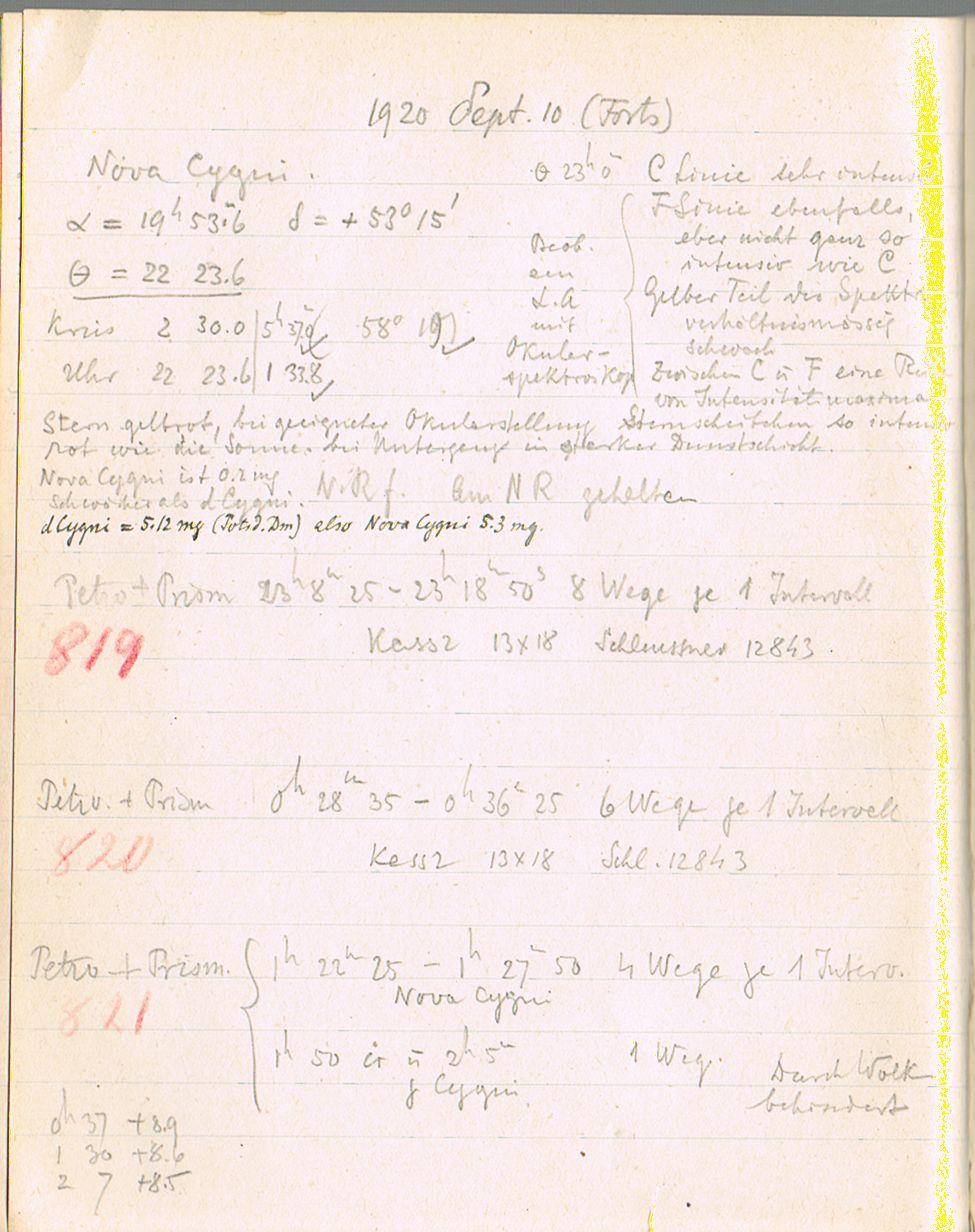 1920 Sept. 10 (Forts)
Nova Cygni.
α = 19h 53m.6 δ = + 53° 15'
θ = 22 23.6
Kreis 2 30.0 | 5h 37m.0 58° 19'
Uhr 22 23.6 | 1 33.8
θ 23h 0m C Linie sehr intens
F Linie ebenfalls,
aber nicht ganz so
intensiv wie C
Gelber Teil des Spektr.
verhältnismässig
schwach
Zwischen C u F eine Rei
von Intensitätsmaxima
Beob.
am
L.A
mit
Okular-
spektroskop
Stern gelbrot, bei geeigneter Okularstellung Sternscheibchen so intensiv
rot wie die Sonne bei Untergang in starker Dunstschicht.
Nova Cygni ist 0.2 mg
schwächer als d Cygni. N.R f. Am N R gehalten
d Cygni = 5.12 mg (Potsd. Dm) also Nova Cygni 5.3 mg.
Petzv + Prism 23h 8m 25 - 23h 18m 50s 8 Wege je 1 Intervall
819 Kass 2 13x18 Schleussner 12843.
Petzv. + Prism 0h 28m 35 - 0h 36m 25 6 Wege je 1 Intervall
820 Kass 2 13x18 Schl. 12843
Petzv + Prism. 1h 22m 25 - 1h 27m 50 4 Wege je 1 Interv.
Nova Cygni
821
1h 50 u 2h 5m 1 Weg.
γ Cygni.
Durch Wolk
behindert
0h 37 +8.9
1 30 +8.6
2 7 +8.5